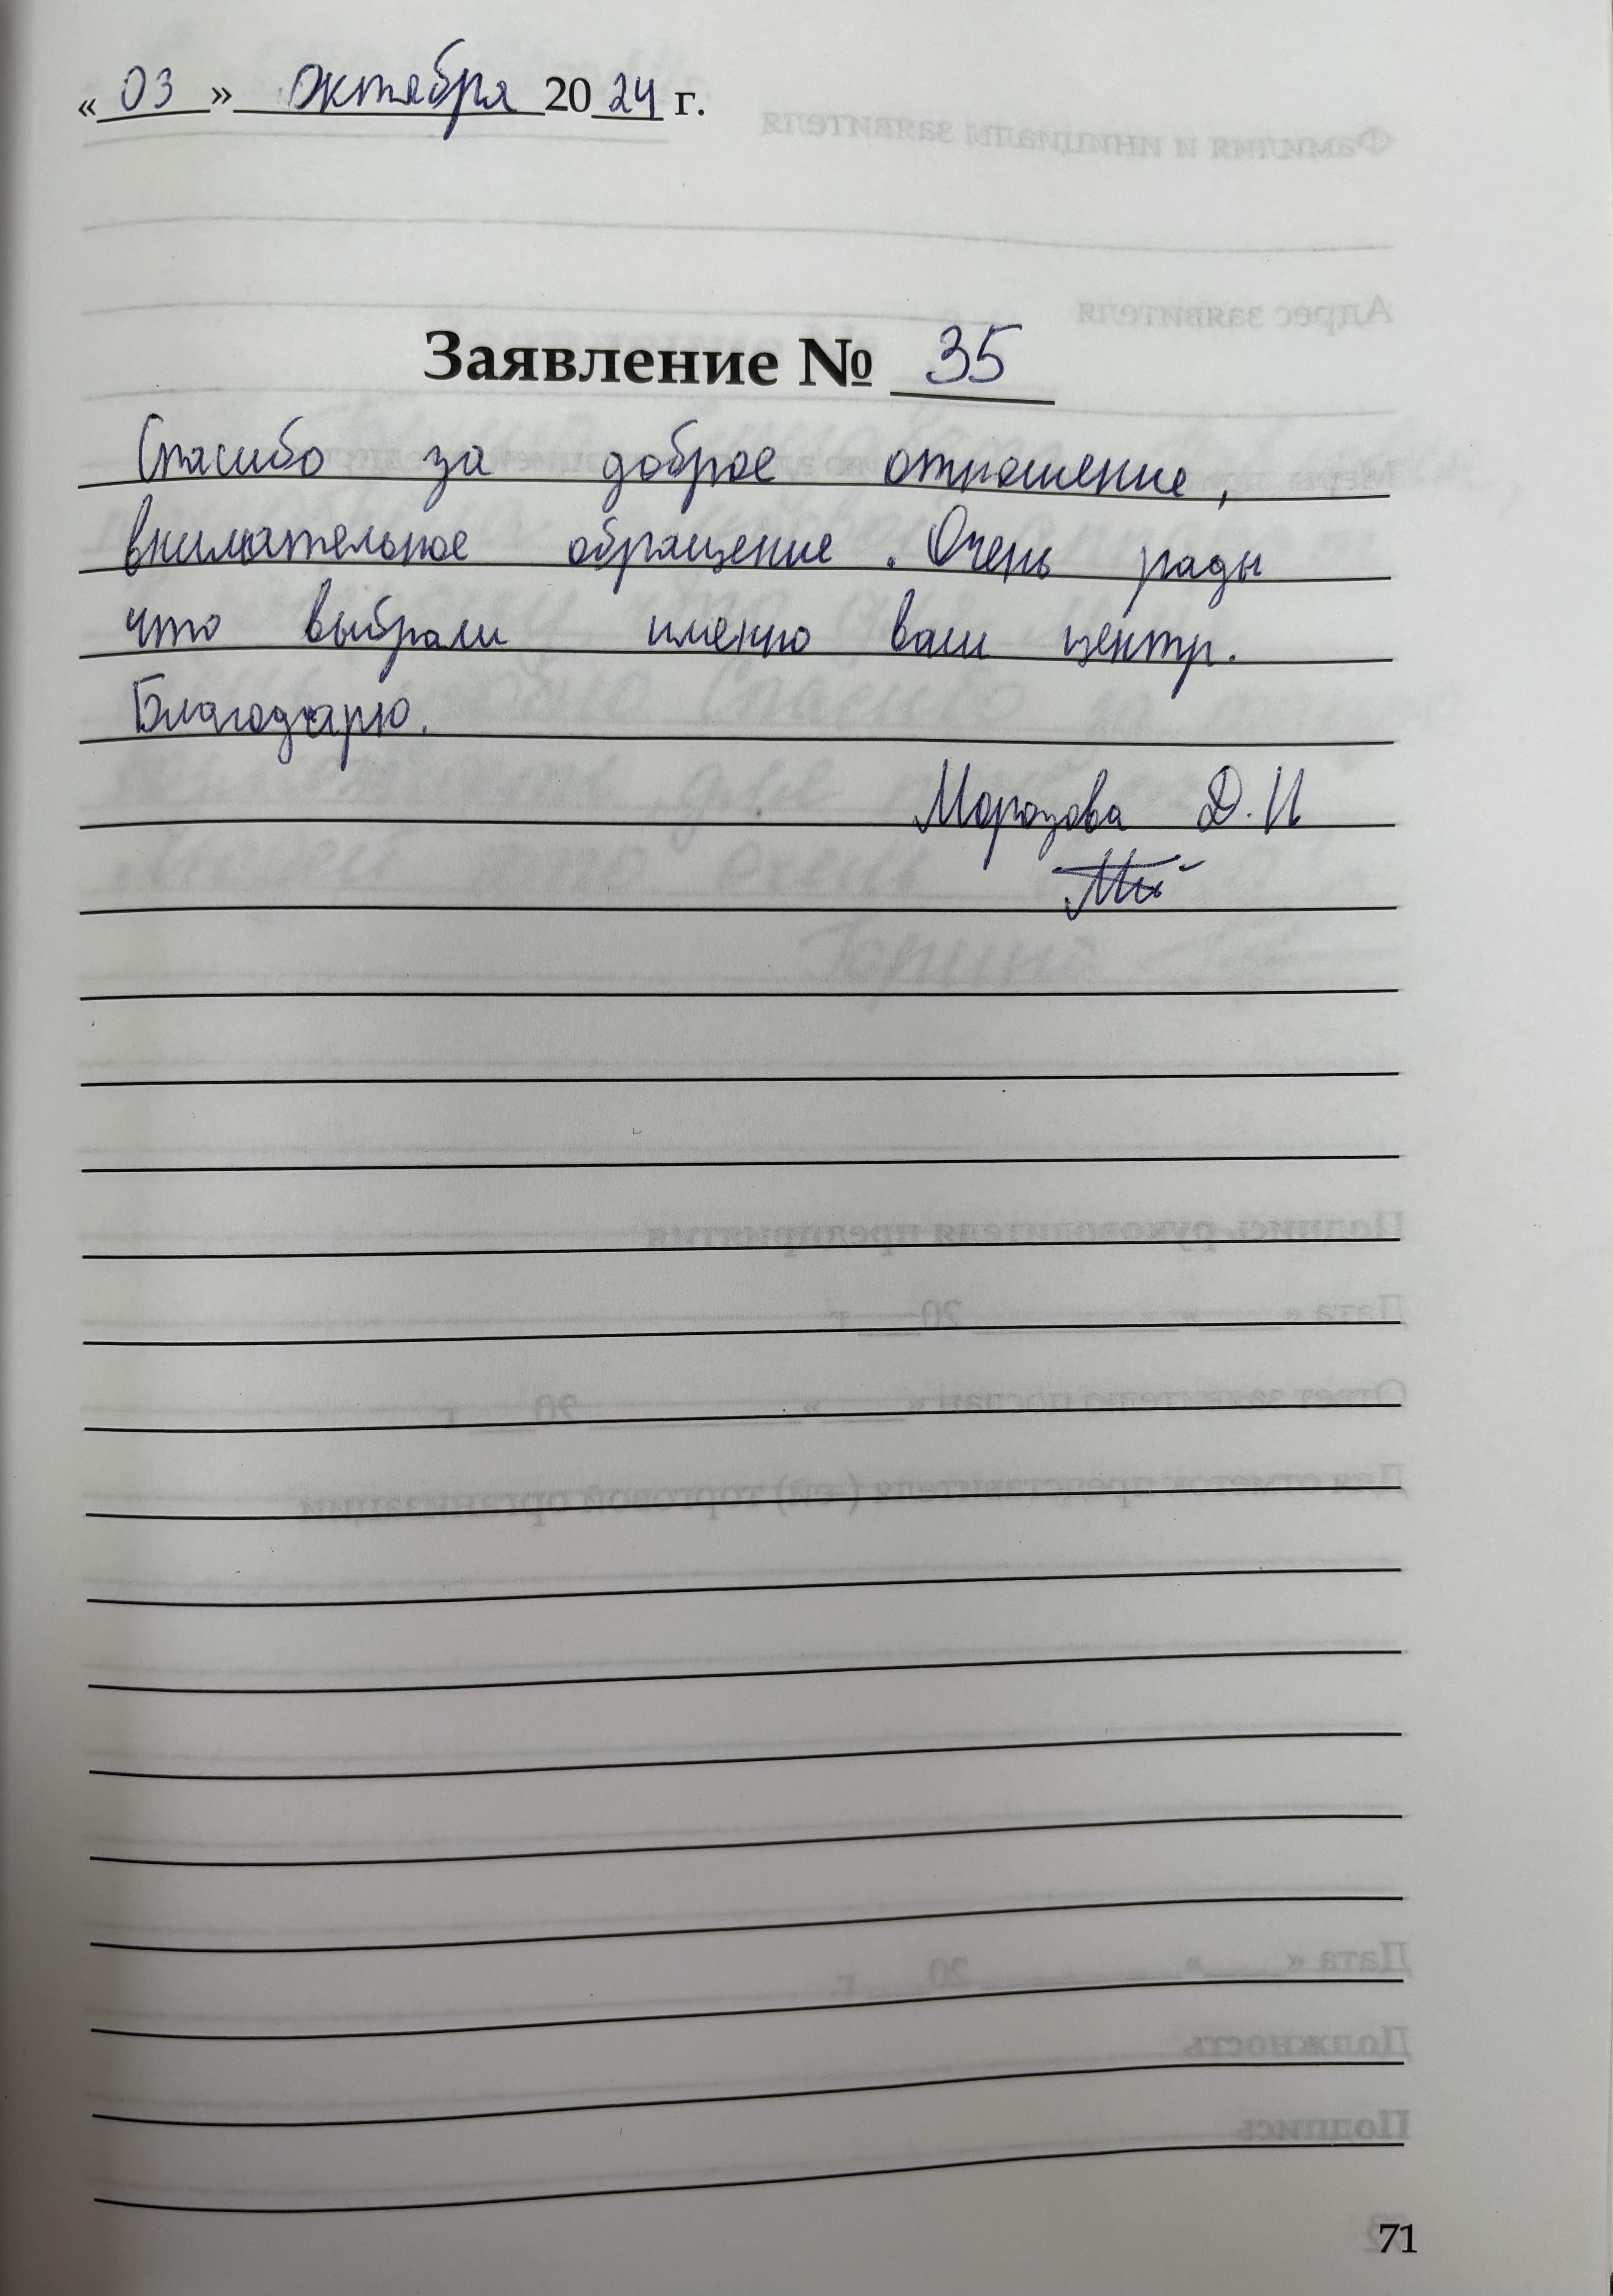 «03» октября 2024 г.
Заявление № 35
Спасибо за доброе отношение,
внимательное обращение. Очень рады
что выбрали именно ваш центр.
Благодарю.
Морозова Д.И
71